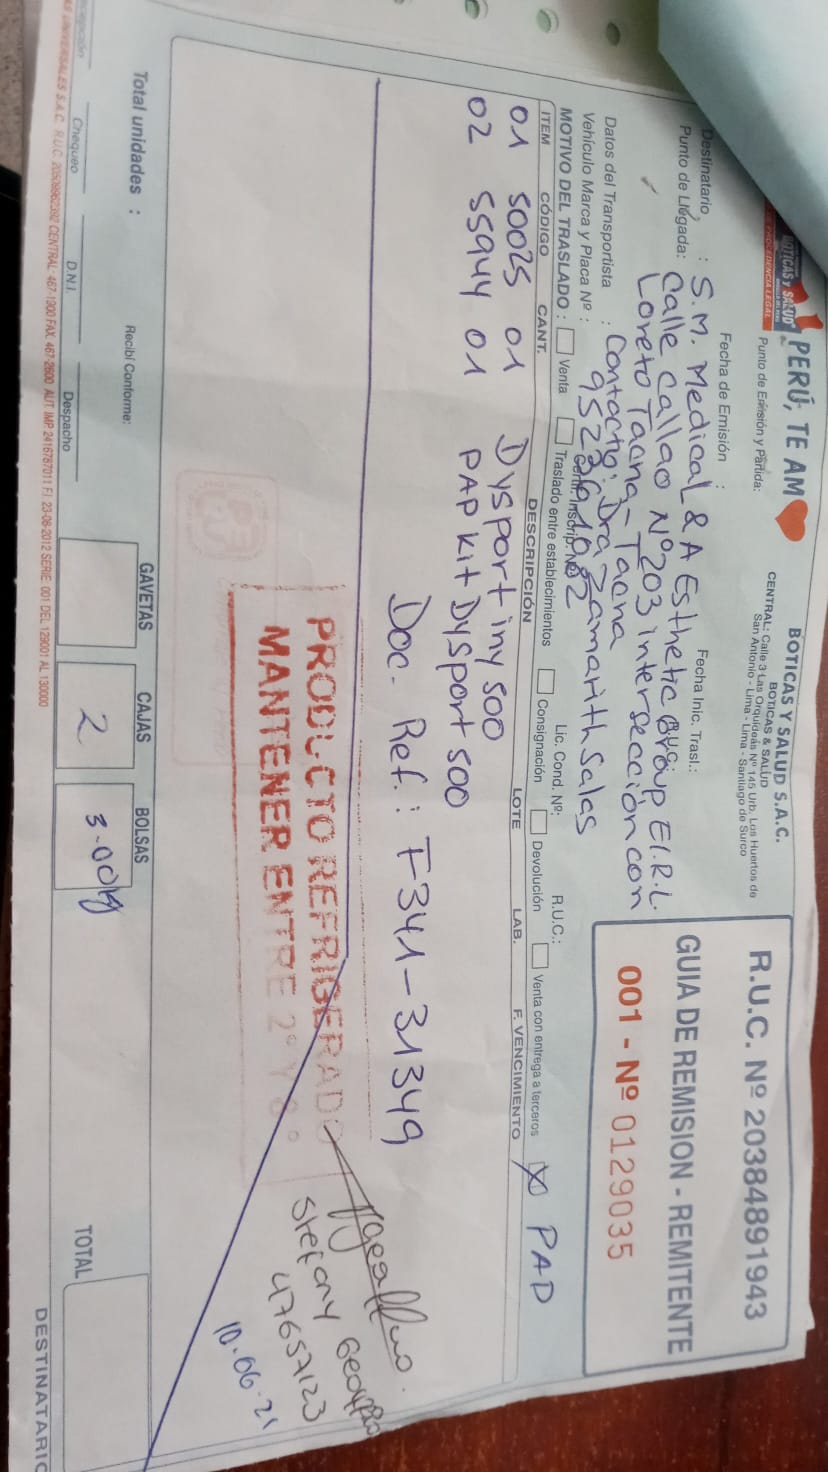 BOTICAS Y SALUD
PERÚ, TE AM
BOTICAS Y SALUD S.A.C.
BOTICAS & SALUD
CENTRAL: Calle 3 Las Orquídeas Nº 145 Urb. Los Huertos de
San Antonio - Lima - Lima - Santiago de Surco
R.U.C. Nº 20384891943
GUIA DE REMISION - REMITENTE
001 - Nº 0129035
Punto de Emisión y Partida:
Fecha de Emisión :
Fecha Inic. Trasl.:
Destinatario : S.M. Medical & A Esthetic Group E.I.R.L.
Punto de Llegada: Calle Callao Nº 203 intersección con
Loreto Tacna - Tacna
R.U.C.:
Datos del Transportista : Contacto: Dra Zamarith Salas
Lic. Cond. Nº:
R.U.C.:
Vehículo Marca y Placa Nº : 952361082
MOTIVO DEL TRASLADO : Venta Traslado entre establecimientos Consignación Devolución Venta con entrega a terceros X PAD
ITEM CÓDIGO CANT. DESCRIPCIÓN LOTE LAB. F. VENCIMIENTO
01 50025 01 Dysport iny 500
02 55944 01 PAP Kit Dysport 500
Doc. Ref.: F341-31349
PRODUCTO REFRIGERADO
MANTENER ENTRE 2° Y 8°
Stefany
47657123
10.06.21
Total unidades :
Recibí Conforme:
GAVETAS CAJAS BOLSAS
2 3.00
TOTAL
Chequeo D.N.I. Despacho
AS UNIVERSALES S.A.C. R.U.C. 20509862392 CENTRAL: 467-1200 FAX. 467-2600 AUT. IMP. 2416787011 F.I. 23-08-2012 SERIE: 001 DEL 129001 AL 130000
DESTINATARIO